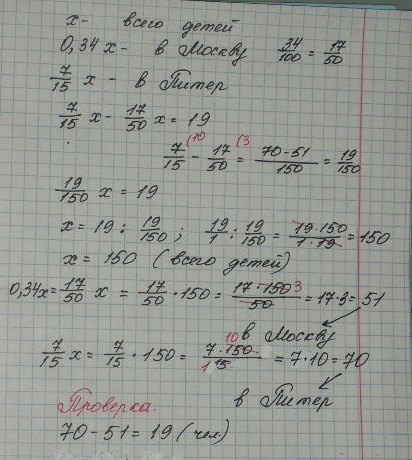 x - всего детей
0,34x - в Москву 34/100 = 17/50
7/15 x - в Питер
7/15 x - 17/50 x = 19
7/15 (10 - 17/50 (3 = 70-51/150 = 19/150
19/150 x = 19
x = 19 : 19/150 ; 19/1 : 19/150 = 19·150/1·19 = 150
x = 150 (всего детей)
0,34x = 17/50 x = 17/50 · 150 = 17·150 3/50 = 17·3 = 51
в Москву
7/15 x = 7/15 · 150 = 7·150 10/15 1 = 7·10 = 70
в Питер
Проверка.
70 - 51 = 19 (чел.)